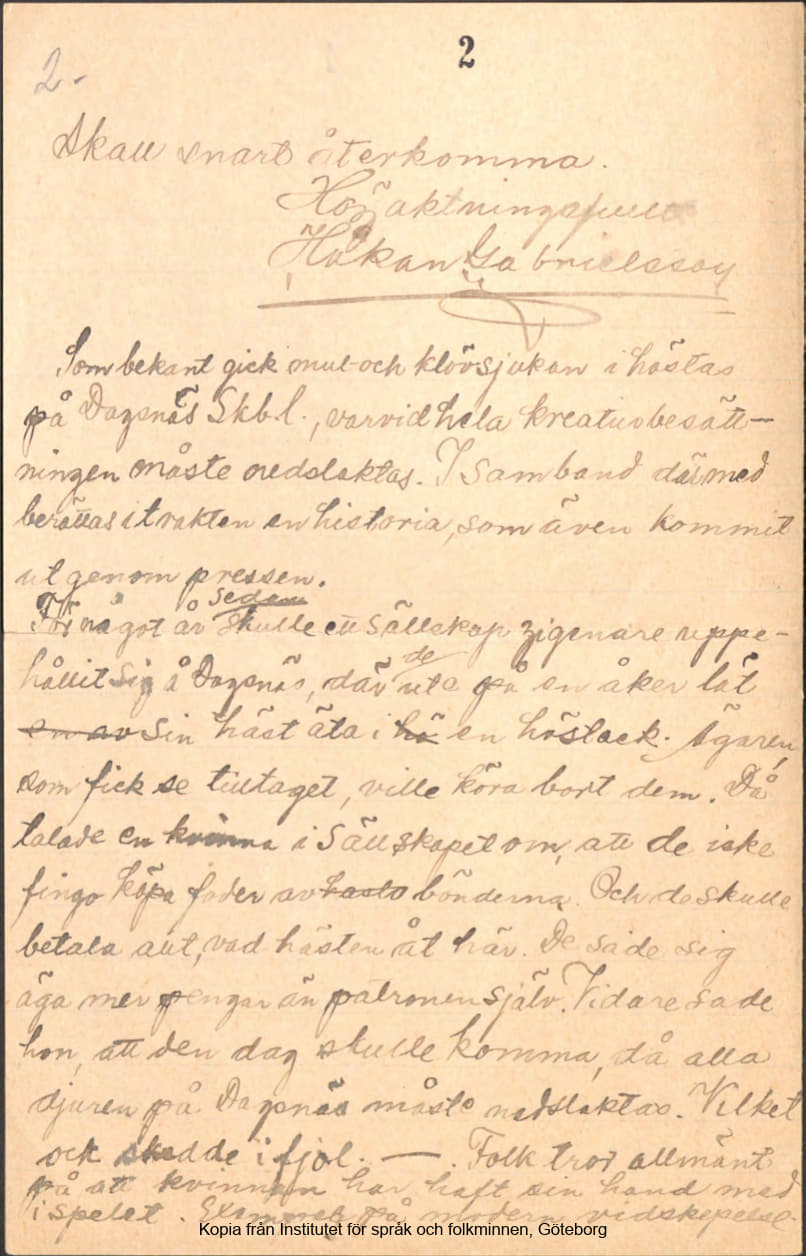 2
2.
Skall snart återkomma.
Högaktningsfullt
Håkan Gabrielsson
Som bekant gick mul- och klövsjukan i höstas
på Dagsnäs Skb.l., varvid hela kreatursbesätt-
ningen måste nedslaktas. I samband därmed
berättas i trakten en historia, som även kommit
ut genom pressen.
För något år sedan skulle ett sällskap zigenare uppe-
hållit sig å Dagsnäs, där de ute på en åker lät
en av sin häst äta i hö en höstack. Ägaren,
som fick se tilltaget, ville köra bort dem. Då
talade en kvinna i sällskapet om, att de icke
fingo köpa foder av bönderna. Och de skulle
betala allt, vad hästen åt här. De sade sig
äga mer pengar än patronen själv. Vidare sade
hon, att den dag skulle komma, då alla
djuren på Dagsnäs måste nedslaktas. Vilket
ock skedde i fjol. — . Folk tror allmänt
på att kvinnan har haft sin hand med
i spelet. Exempel på modern vidskepelse.
Kopia från Institutet för språk och folkminnen, Göteborg